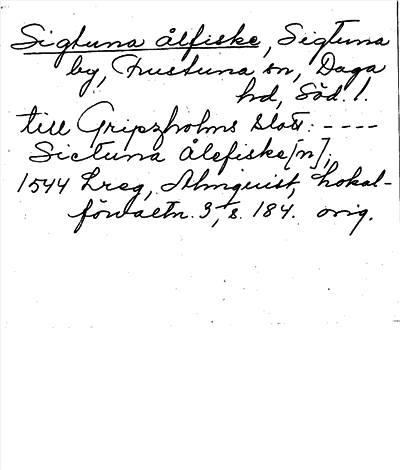 Sigtuna ålfiske, Sigtuna
by, Frustuna sn, Daga
hd, Söd. l.
till Gripzholms Slott: ----
Sictuna ålefiske[n];
1544 Lreg, Almquist, Lokal-
förvaltn. 3, s. 184. orig.